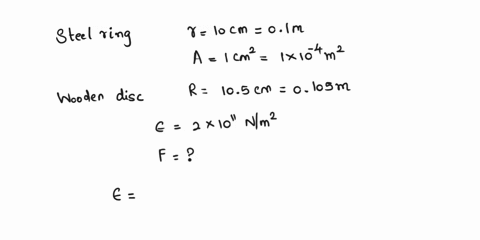 Steel ring r = 10 cm = 0.1 m
A = 1 cm² = 1 × 10⁻⁴ m²
Wooden disc R = 10.5 cm = 0.105 m
E = 2 × 10¹¹ N/m²
F = ?
E =